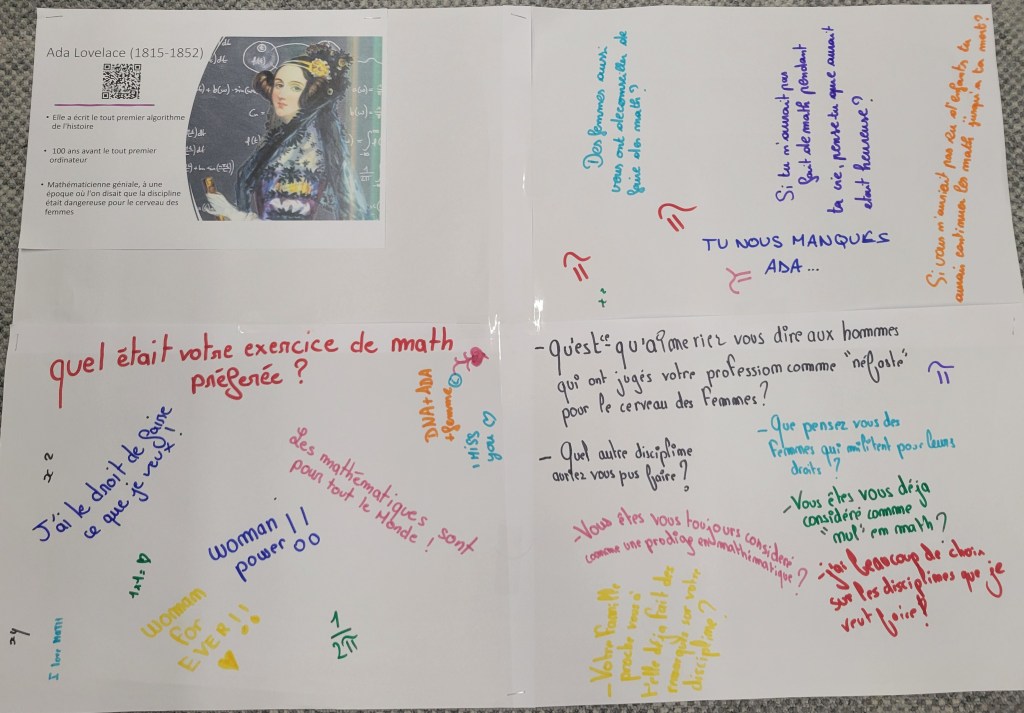 Ada Lovelace (1815-1852)
• Elle a écrit le tout premier algorithme
de l'histoire
• 100 ans avant le tout premier
ordinateur
• Mathématicienne géniale, à une
époque où l'on disait que la discipline
était dangereuse pour le cerveau des
femmes
Des femmes aussi
vous ont déconseiller de
faire des math?
Si tu n'aurait pas
fait de math pendant
ta vie, pense-tu que aurait
était heureuse?
Si vous n'auriait pas eu d'enfants la
aurais continuer les math jusqu'a ta mort?
π
π
TU NOUS MANQUES
ADA...
π
quel était votre exercice de math
préferée ?
DNA + ADA
+ femme
I MISS
you ♡
J'ai le droit de faire
ce que je veux !
Les mathématiques sont
pour tout le Monde !
woman
power !!
1+1=♥
woman
for
EVER !!
♥
I love MatH
- Qu'est ce qu'aimeriez vous dire aux hommes
qui ont jugés votre profession comme "néfaste"
pour le cerveau des Femmes ?
π
- Quel autre discipline
auriez vous pus faire ?
- Que pensez vous des
femmes qui militent pour leurs
droits !?
- Vous êtes vous déja
considéré comme
"nul" en math ?
- Vous êtes vous toujours considéré
comme une prodige en mathématique ?
- j'ai beaucoup de choix
sur les disciplines que je
veut faire !
- Votre Famille
proche vous a
t'elle déja fait des
remarques sur votre
discipline ?